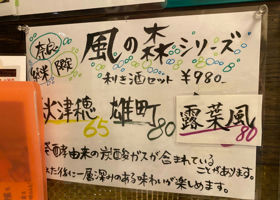 奈良 油長 酒造
風の森シリーズ
利き酒セット ¥980-
秋津穂 65 雄町 80 露葉風 80
発酵由来の炭酸ガスが含まれていることがあります。
一層深りのある味わいが楽しめます。